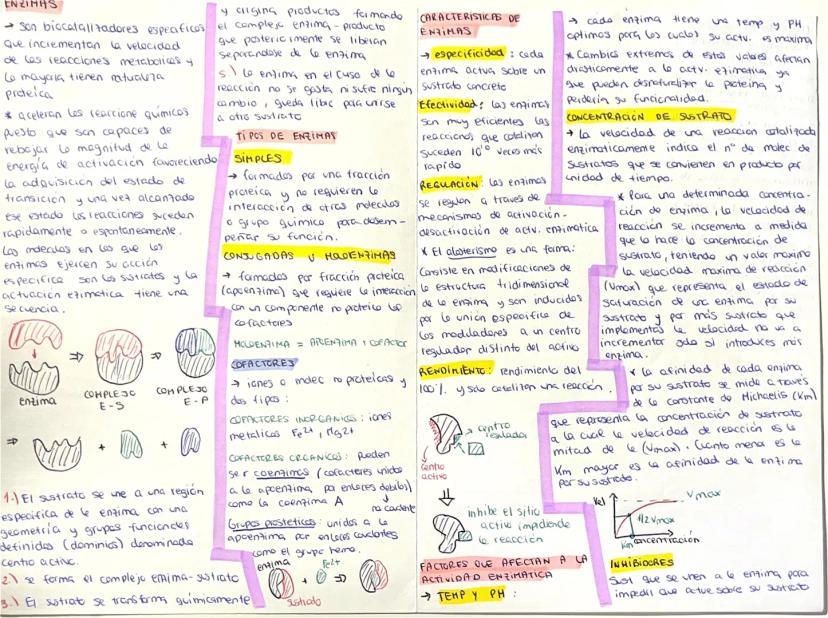 ENZIMAS
→ son biocatalizadores específicos
que incrementan la velocidad
de las reacciones metabolicas y
la mayoría tienen naturaleza
proteica
* aceleran las reacciones químicas
puesto que son capaces de
rebajar la magnitud de la
energía de activación favoreciendo
la adquisición del estado de
transición y una vez alcanzado
ese estado las reacciones suceden
rapidamente o espontaneamente.
Las moleculas en las que las
enzimas ejercen su acción
especifica son los sustratos y la
actuación enzimatica tiene una
secuencia.
enzima
COMPLEJO
E-S
COMPLEJO
E-P
1.) El sustrato se une a una región
especifica de la enzima con una
geometría y grupos funcionales
definidos (dominios) denominada
centro activo.
2.) se forma el complejo enzima-sustrato
3.) El sustrato se transforma químicamente
y origina productos formando
el complejo enzima-producto
que posteriormente se liberan
separandose de la enzima
5.) la enzima en el curso de la
reacción no se gasta ni sufre ningún
cambio, queda libre para unirse
a otro sustrato
TIPOS DE ENZIMAS
SIMPLES
→ formadas por una fracción
proteica y no requieren la
interacción de otras moleculas
o grupo químico para desem-
peñar su función.
CONJUGADAS U HOLOENZIMAS
→ formadas por fracción proteica
(apoenzima) que requiere la interacción
con un componente no proteico los
cofactores
HOLOENZIMA = APOENZIMA + COFACTOR
COFACTORES
→ iones o molec no proteicas y
dos tipos:
COFACTORES INORGANICOS: iones
metalicos Fe2+, Mg2+
COFACTORES ORGANICOS: pueden
ser coenzimas (cofactores unidos
a la apoenzima por enlaces debiles)
como la coenzima A
no covalente
Grupos prosteticos: unidos a la
apoenzima por enlaces covalentes
como el grupo hemo.
enzima
Fe2+
sustrato
CARACTERISTICAS DE
ENZIMAS
→ especificidad: cada
enzima actua sobre un
sustrato concreto
Efectividad: las enzimas
son muy eficientes las
reacciones que catalizan
suceden 10^10 veces más
rapido
REGULACIÓN: las enzimas
se regulan a traves de
mecanismos de activación-
desactivación de actv. enzimatica
* El alosterismo es una forma:
Consiste en modificaciones de
la estructura tridimensional
de la enzima y son inducidas
por la unión especifica de
los moduladores a un centro
regulador distinto del activo
RENDIMIENTO: rendimiento del
100% y solo catalizan una reacción.
centro
regulador
Centro
activo
inhibe el sitio
activo impidiendo
la reacción
FACTORES QUE AFECTAN A LA
ACTIVIDAD ENZIMATICA
→ TEMP Y PH:
→ cada enzima tiene una temp y PH
optimos para los cuales su actv. es maxima
* Cambios extremos de estos valores afectan
drasticamente a la actv. enzimatica ya
que pueden desnaturalizar la proteina y
perderia su funcionalidad.
CONCENTRACIÓN DE SUSTRATO
→ La velocidad de una reaccion catalizada
enzimaticamente indica el nº de molec de
sustratos que se convierten en producto por
unidad de tiempo.
* Para una determinada concentra-
ción de enzima, la velocidad de
reacción se incrementa a medida
que lo hace la concentración de
sustrato, teniendo un valor maximo
la velocidad maxima de reacción
(Vmax) que representa el estado de
saturación de una enzima por su
sustrato y por más sustrato que
implementes la velocidad no va a
incrementar solo si introduces más
enzima.
* la afinidad de cada enzima
por su sustrato se mide a traves
de la constante de Michaelis (Km)
que representa la concentración de sustrato
a la cual la velocidad de reacción es la
mitad de la (Vmax). Cuanto menor es la
Km mayor es la afinidad de la enzima
por su sustrato.
Vel
Vmax
1/2 Vmax
Km
concentración
INHIBIDORES
Sust que se unen a la enzima para
impedir que actue sobre su sustrato